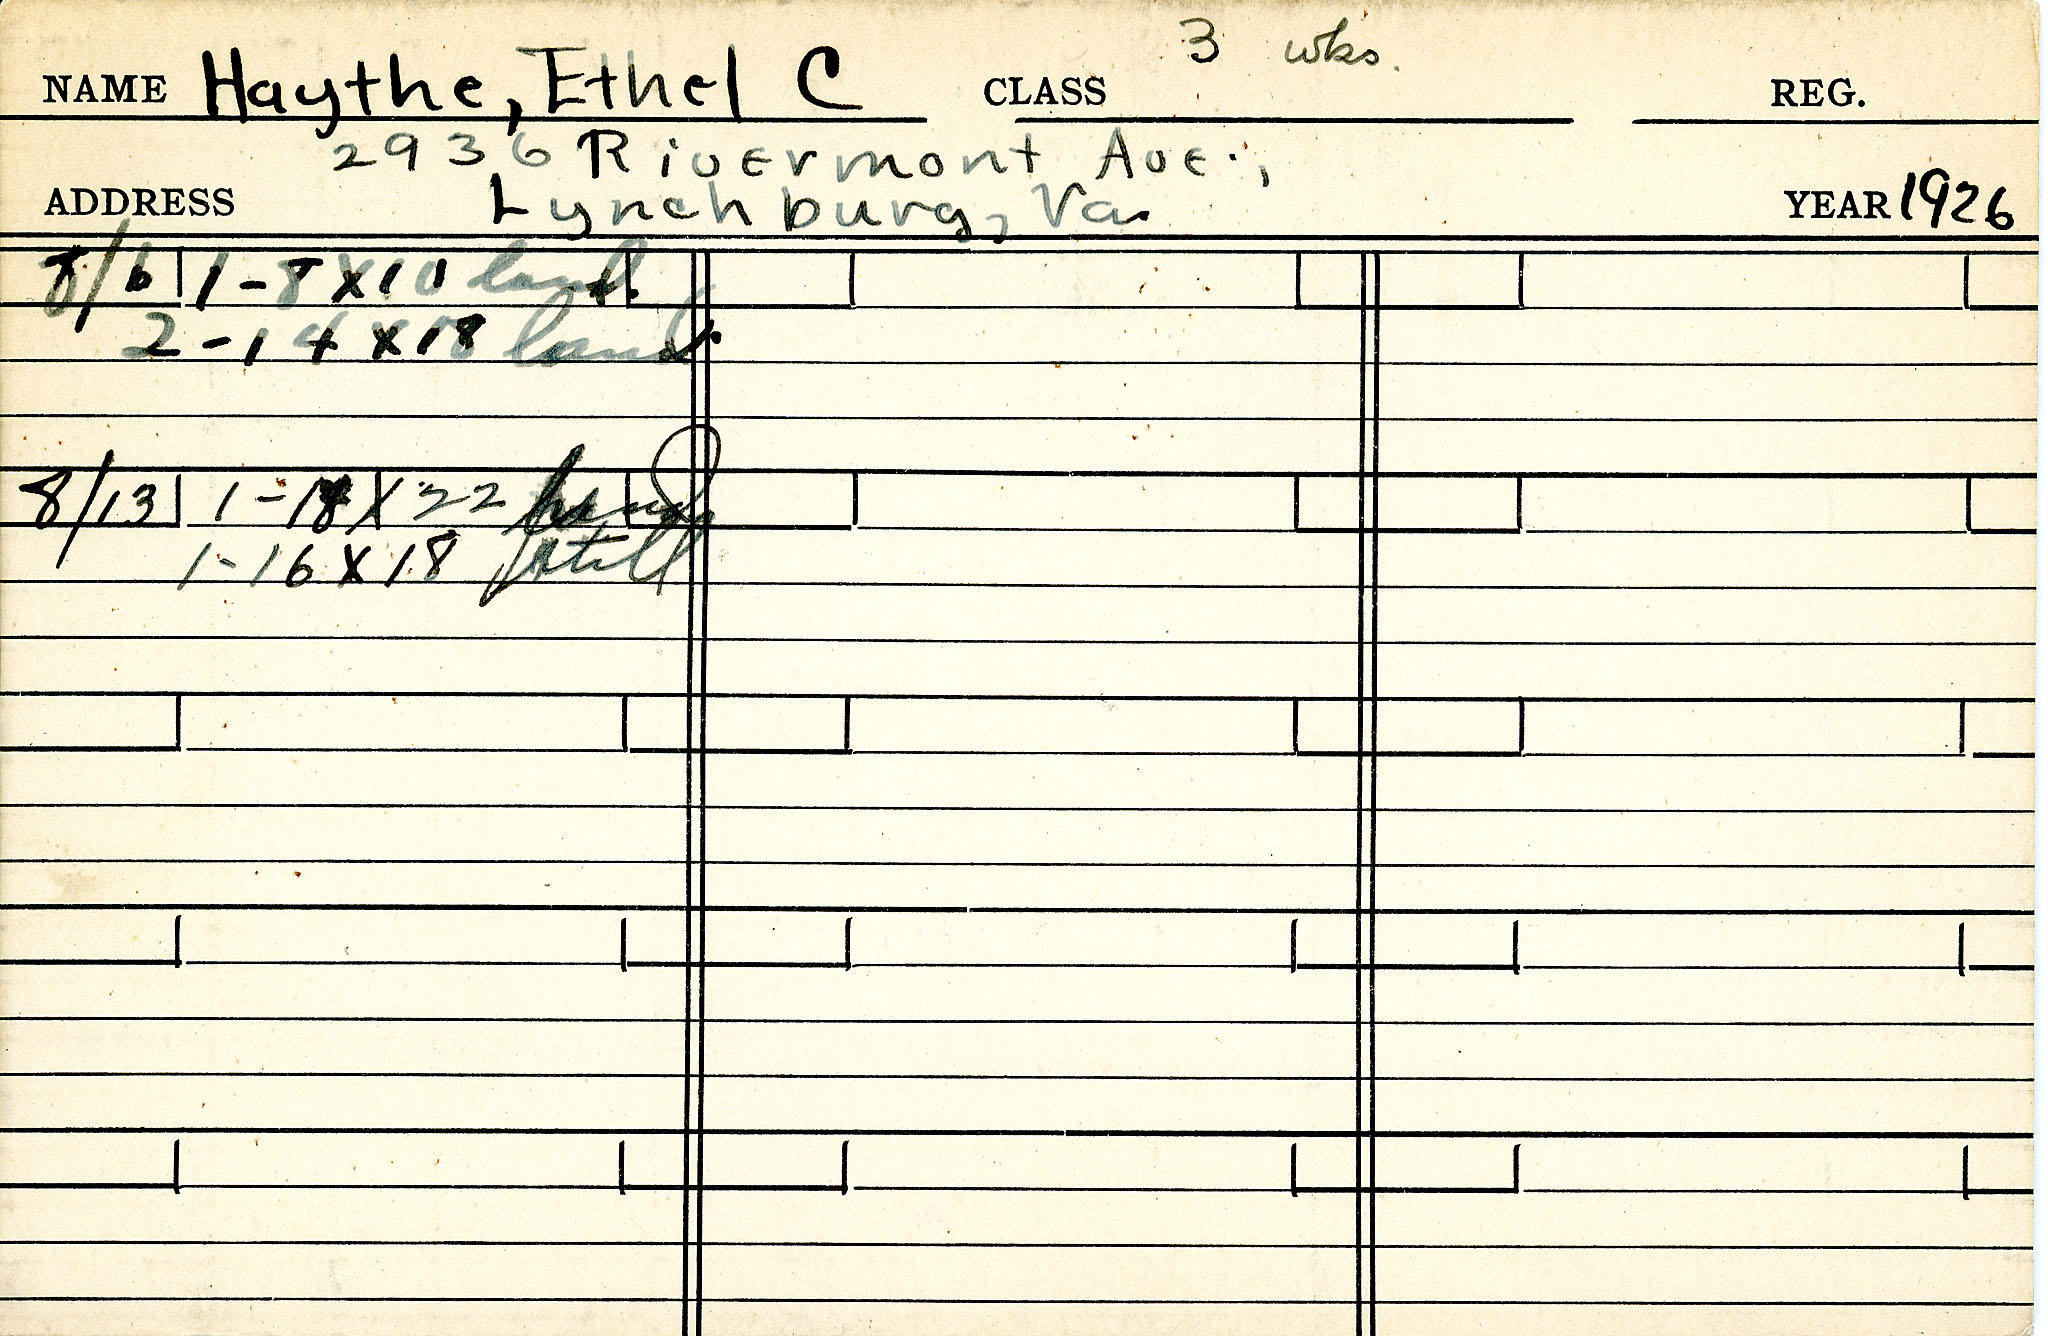 NAME Haythe, Ethel C CLASS 3 wks. REG.
2936 Rivermont Ave.,
ADDRESS Lynchburg, Va. YEAR 1926
8/6 1-8x10 land.
2-14x18 land.
8/13 1-18x22
1-16x18 still